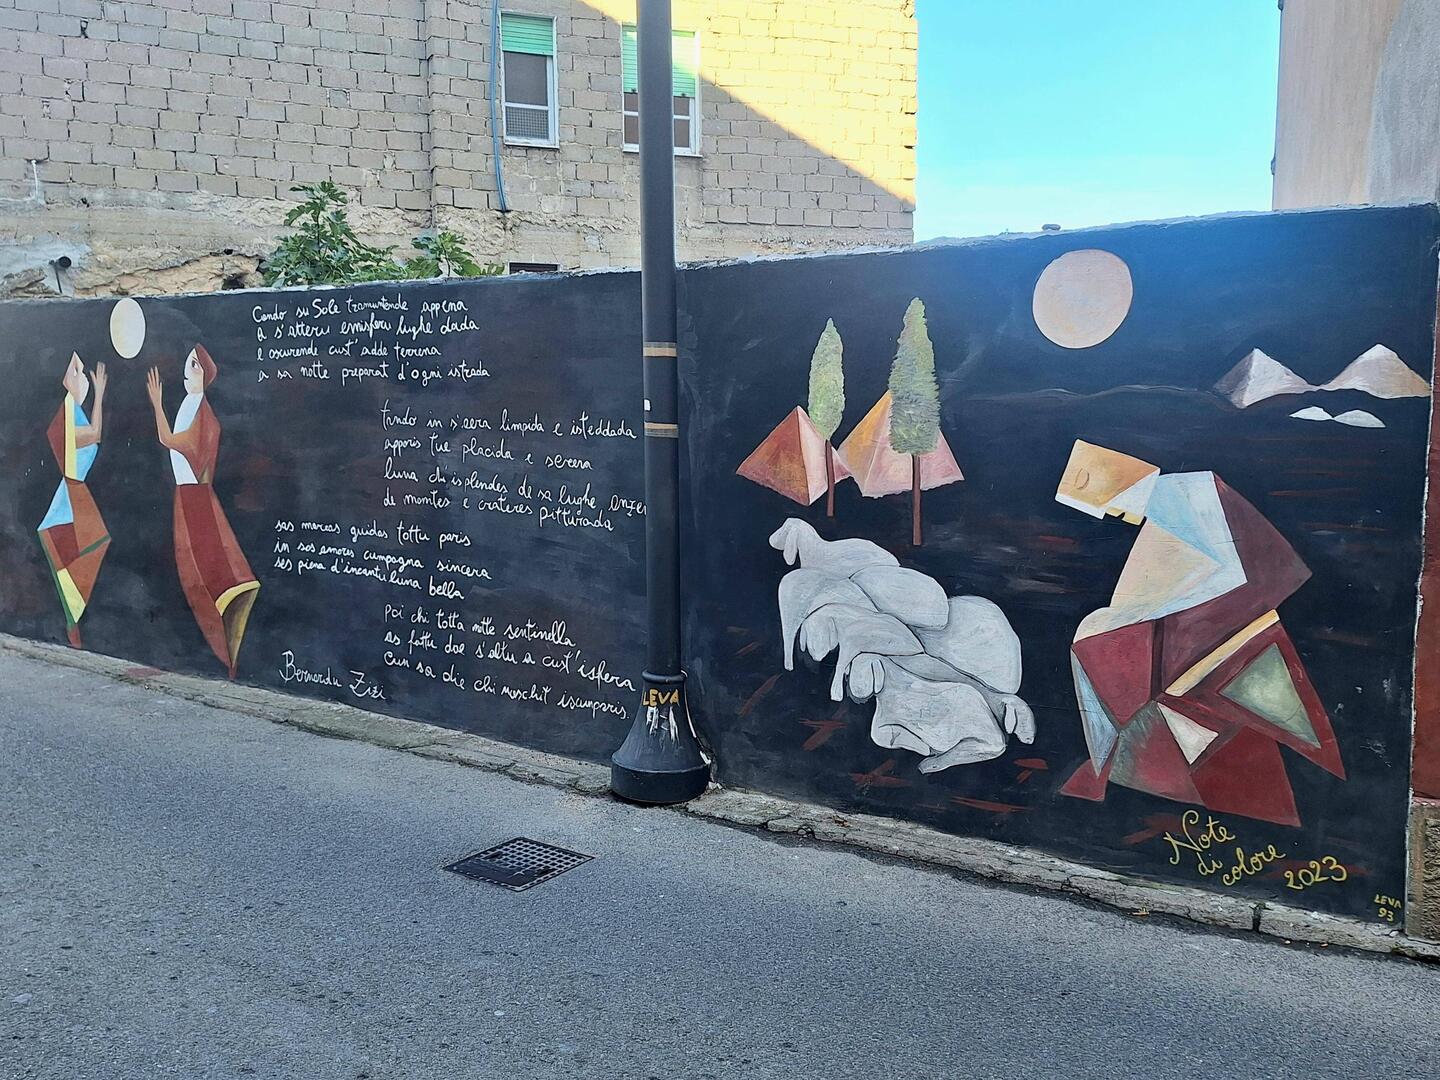 Cando su Sole tramuntende appena
a s'atteru emisferu lughe dada
e oscurende cust'adde terrena
a sa notte preparat d'ogni istrada
tando in s'aera limpida e isteddada
apparis tue placida e serena
luna chi isplendes de sa lughe
de montes e crateres pitturada
sas mareas guidas tottu paris
in sos amores cumpagna sincera
ses piena d'incantu luna bella
poi chi totta notte sentinella
as fattu dae s'altu a cust'isfera
cun sa die chi naschit iscumparis.
Bernardu Zizi
LEVA
Note
di
colore
2023
LEVA
93